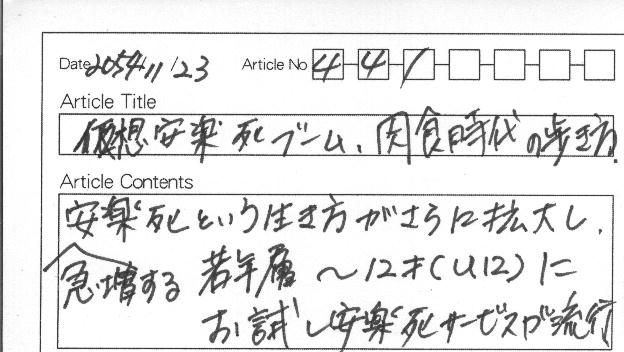 Date 2054/11/23 Article No 441
Article Title
仮想安楽死ブーム、肉食時代の歩き方.
Article Contents
安楽死という生き方がさらに拡大し、
急増する 若年層 〜12才(U12)に
お試し安楽死サービスが流行